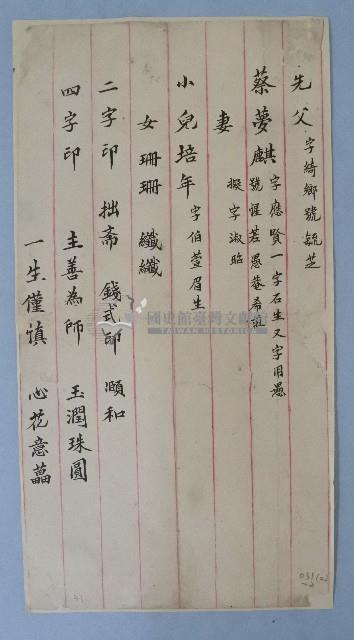 先父 字綺鄉號毓芝
蔡夢麒 字應賢一字石生又字用愚
號惺若愚菴希莊
妻 擬字淑昭
小兒培年 字伯萱眉生
女 珊珊 纖纖
二字印 拙斋 錢式印 頤和
四字印 主善為師 玉潤珠圓
一生僅慎 心花意蕋
國史館臺灣文獻館
TAIWAN HISTORICA